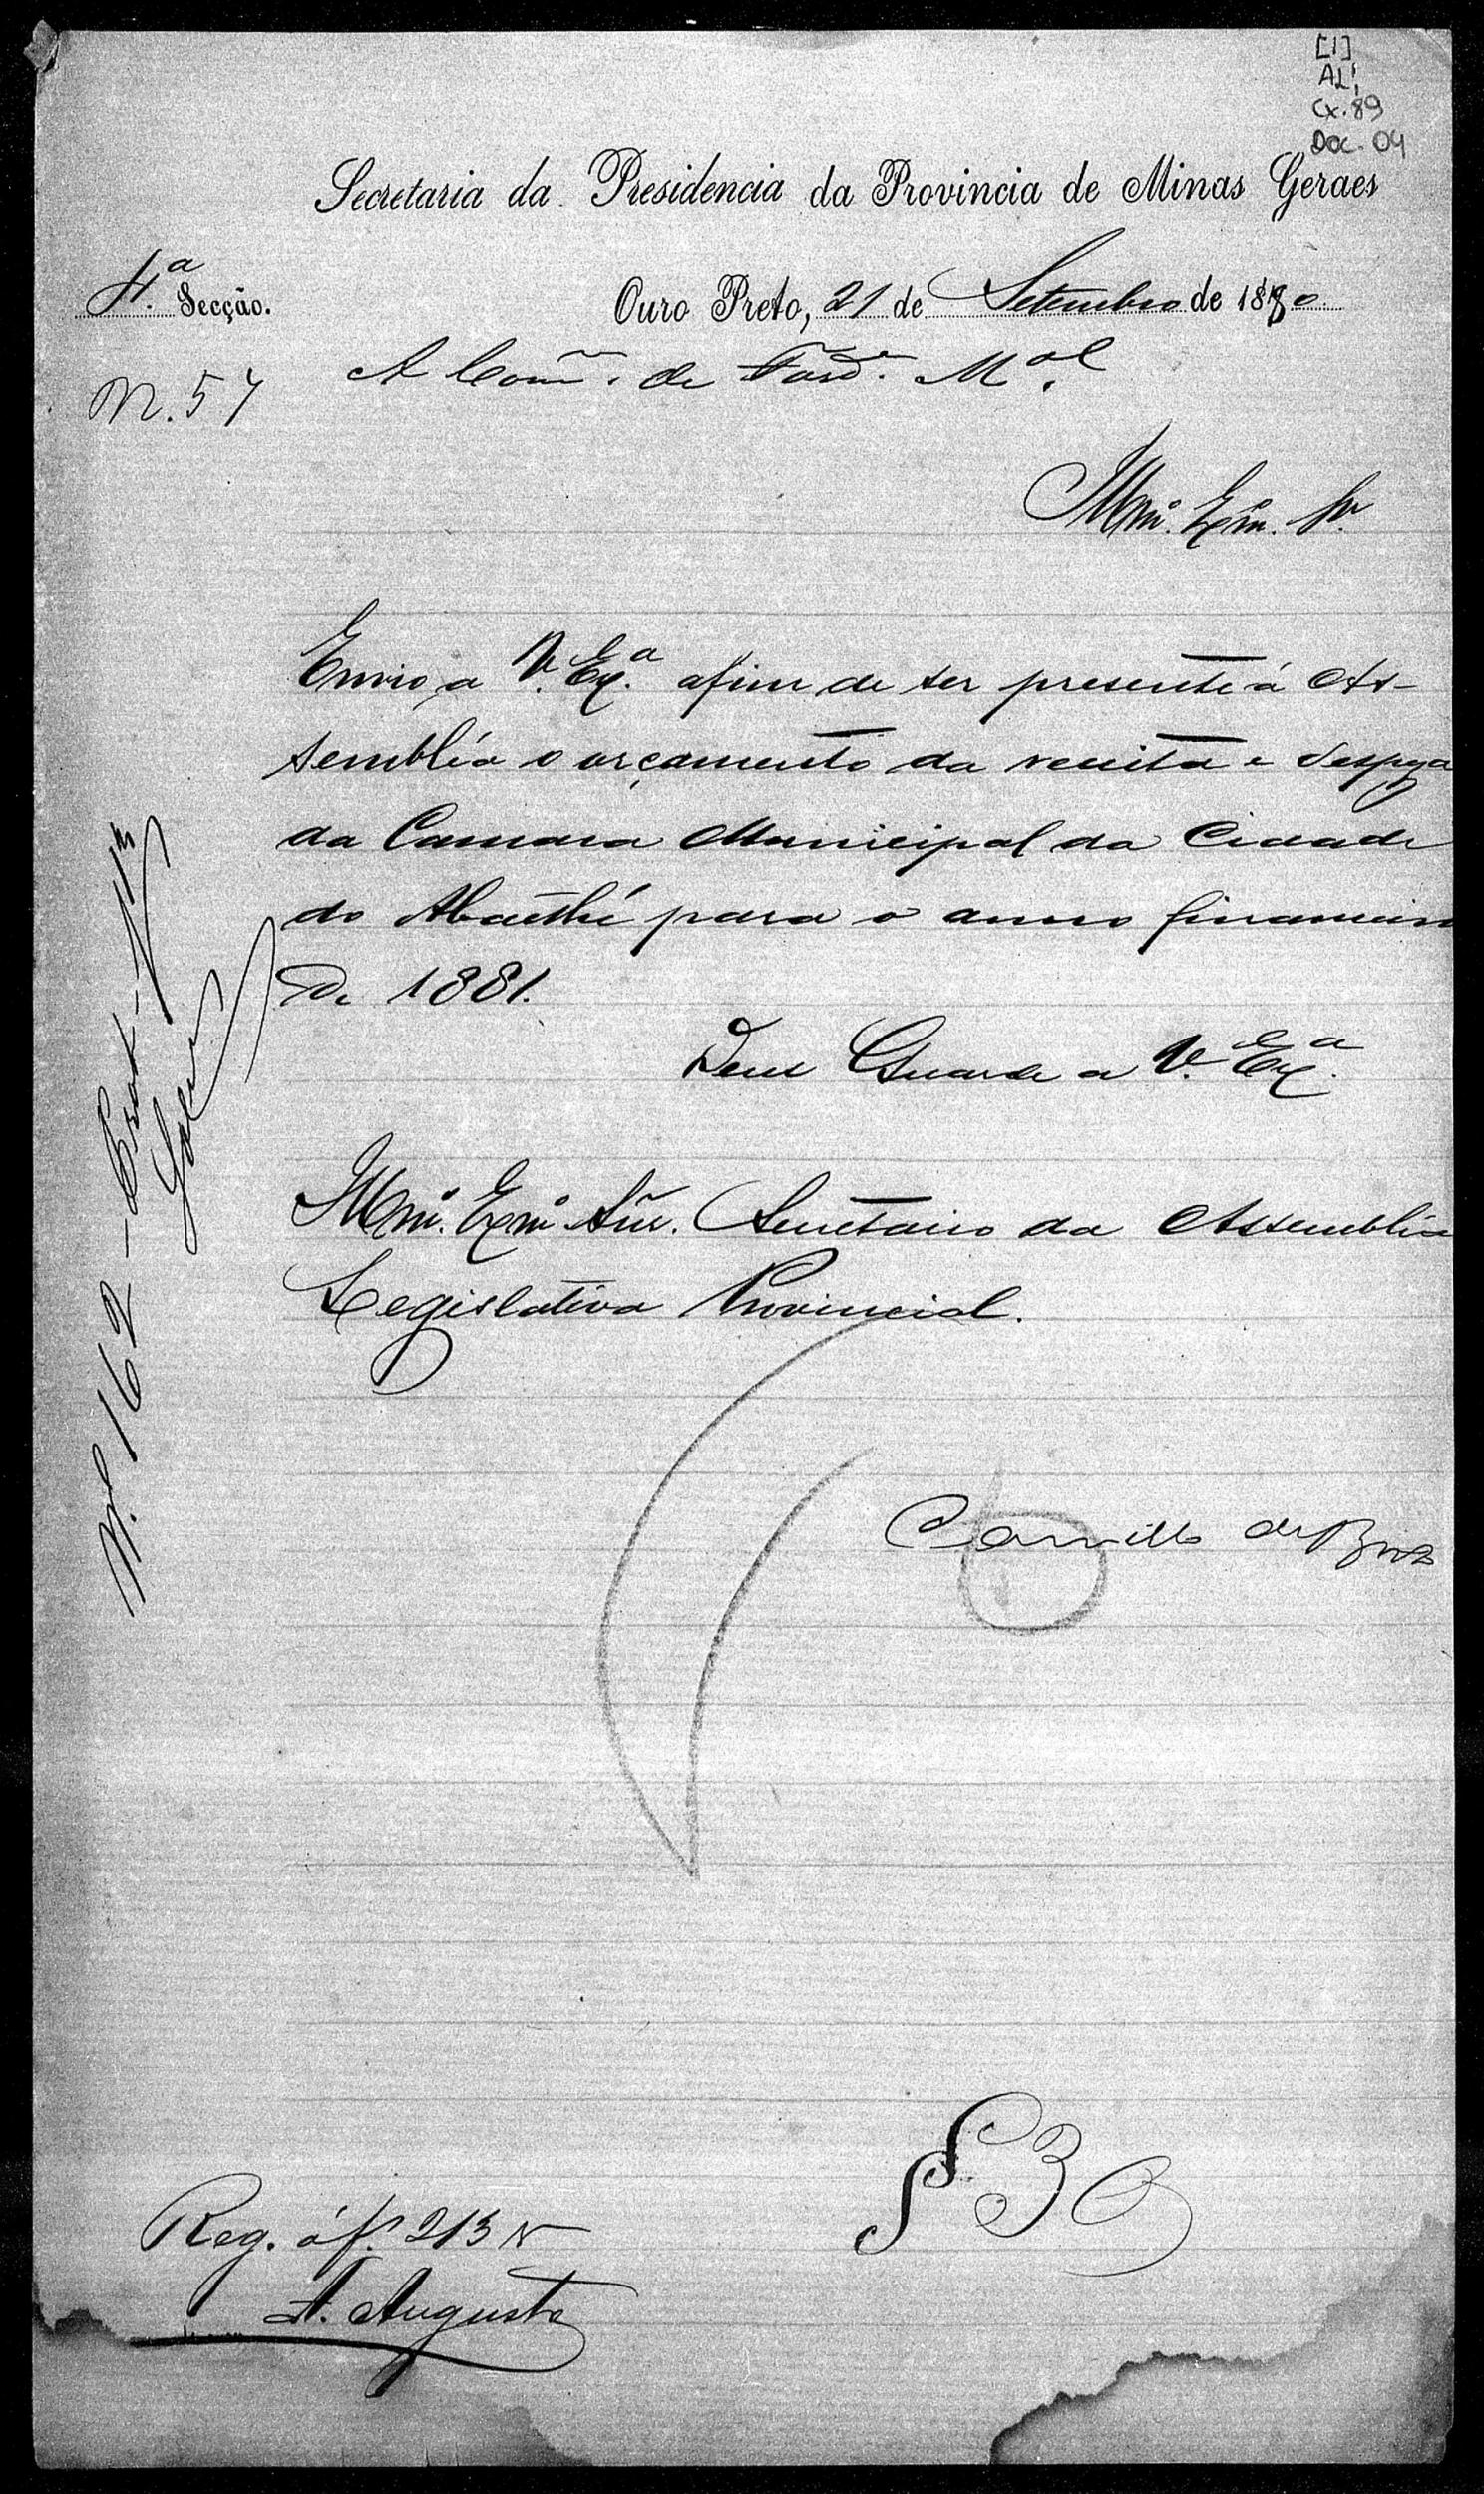 [1]
AL¹,
Cx. 89
Doc. 04
Secretaria da Presidencia da Provincia de Minas Geraes
4.ª Secção.
Ouro Preto, 21 de Setembro de 1880
N. 57
A Comm. de Fasd.ª M.al
Illm.º Exm.º Sr.
Envio a V. Ex.ª afim de ser presente á As-
sembléa o orçamento da receita e despeza
da Camara Municipal da Cidade
do Abaethé para o anno financeiro
de 1881.
Deus Guarde a V. Ex.ª
Illm.º Exm.º Sñr. Secretario da Assembléa
Legislativa Provincial.
Camillo de Brito
N.º 162
Reg. á f. 213 v
A. Augusto